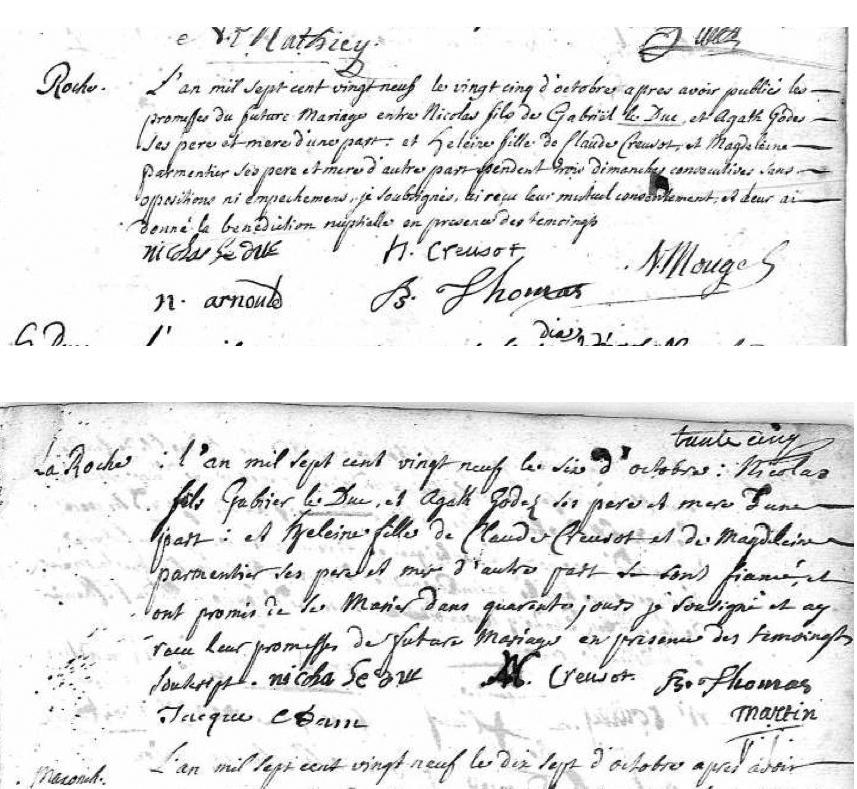 e N. T. Mathiey.
Roche.
L'an mil sept cent vingt neuf le vingt cinq d'octobre apres avoir publiés les
promesses du future Mariage entre Nicolas fils de Gabriel le Duc, et Agath Godes
ses pere et mere d'une part: et heleine fille de Claude Creusot, et Magdeleine
parmentier ses pere et mere d'autre part pendent trois dimanches consecutives sans
oppositions ni empechemens, je soubsignés, ai reçu leur mutuel consentement, et deur ai
donné la benediction nuptialle en presence des temoings
nicolas le duc H. Creusot N. Mougel
n. arnould B. Thomas
L'
trente cinq
La Roche : l'an mil sept cent vingt neuf le six d'octobre: Nicolas
fils Gabriel le Duc, et Agath Godez ses pere et mere d'une
part: et Heleine fille de Claude Creusot et de Magdeleine
parmentier ses pere et mere d'autre part se sont fiancé, et
ont promis de se Marier dans quarante jours je sousigné et ay
recu leur promesses de future Mariage en presence des temoingts
souscript. nicola le duc Creusot. B. Thomas
Jacque Martin
L'an mil sept cent vingt neuf le dix sept d'octobre apres avoir